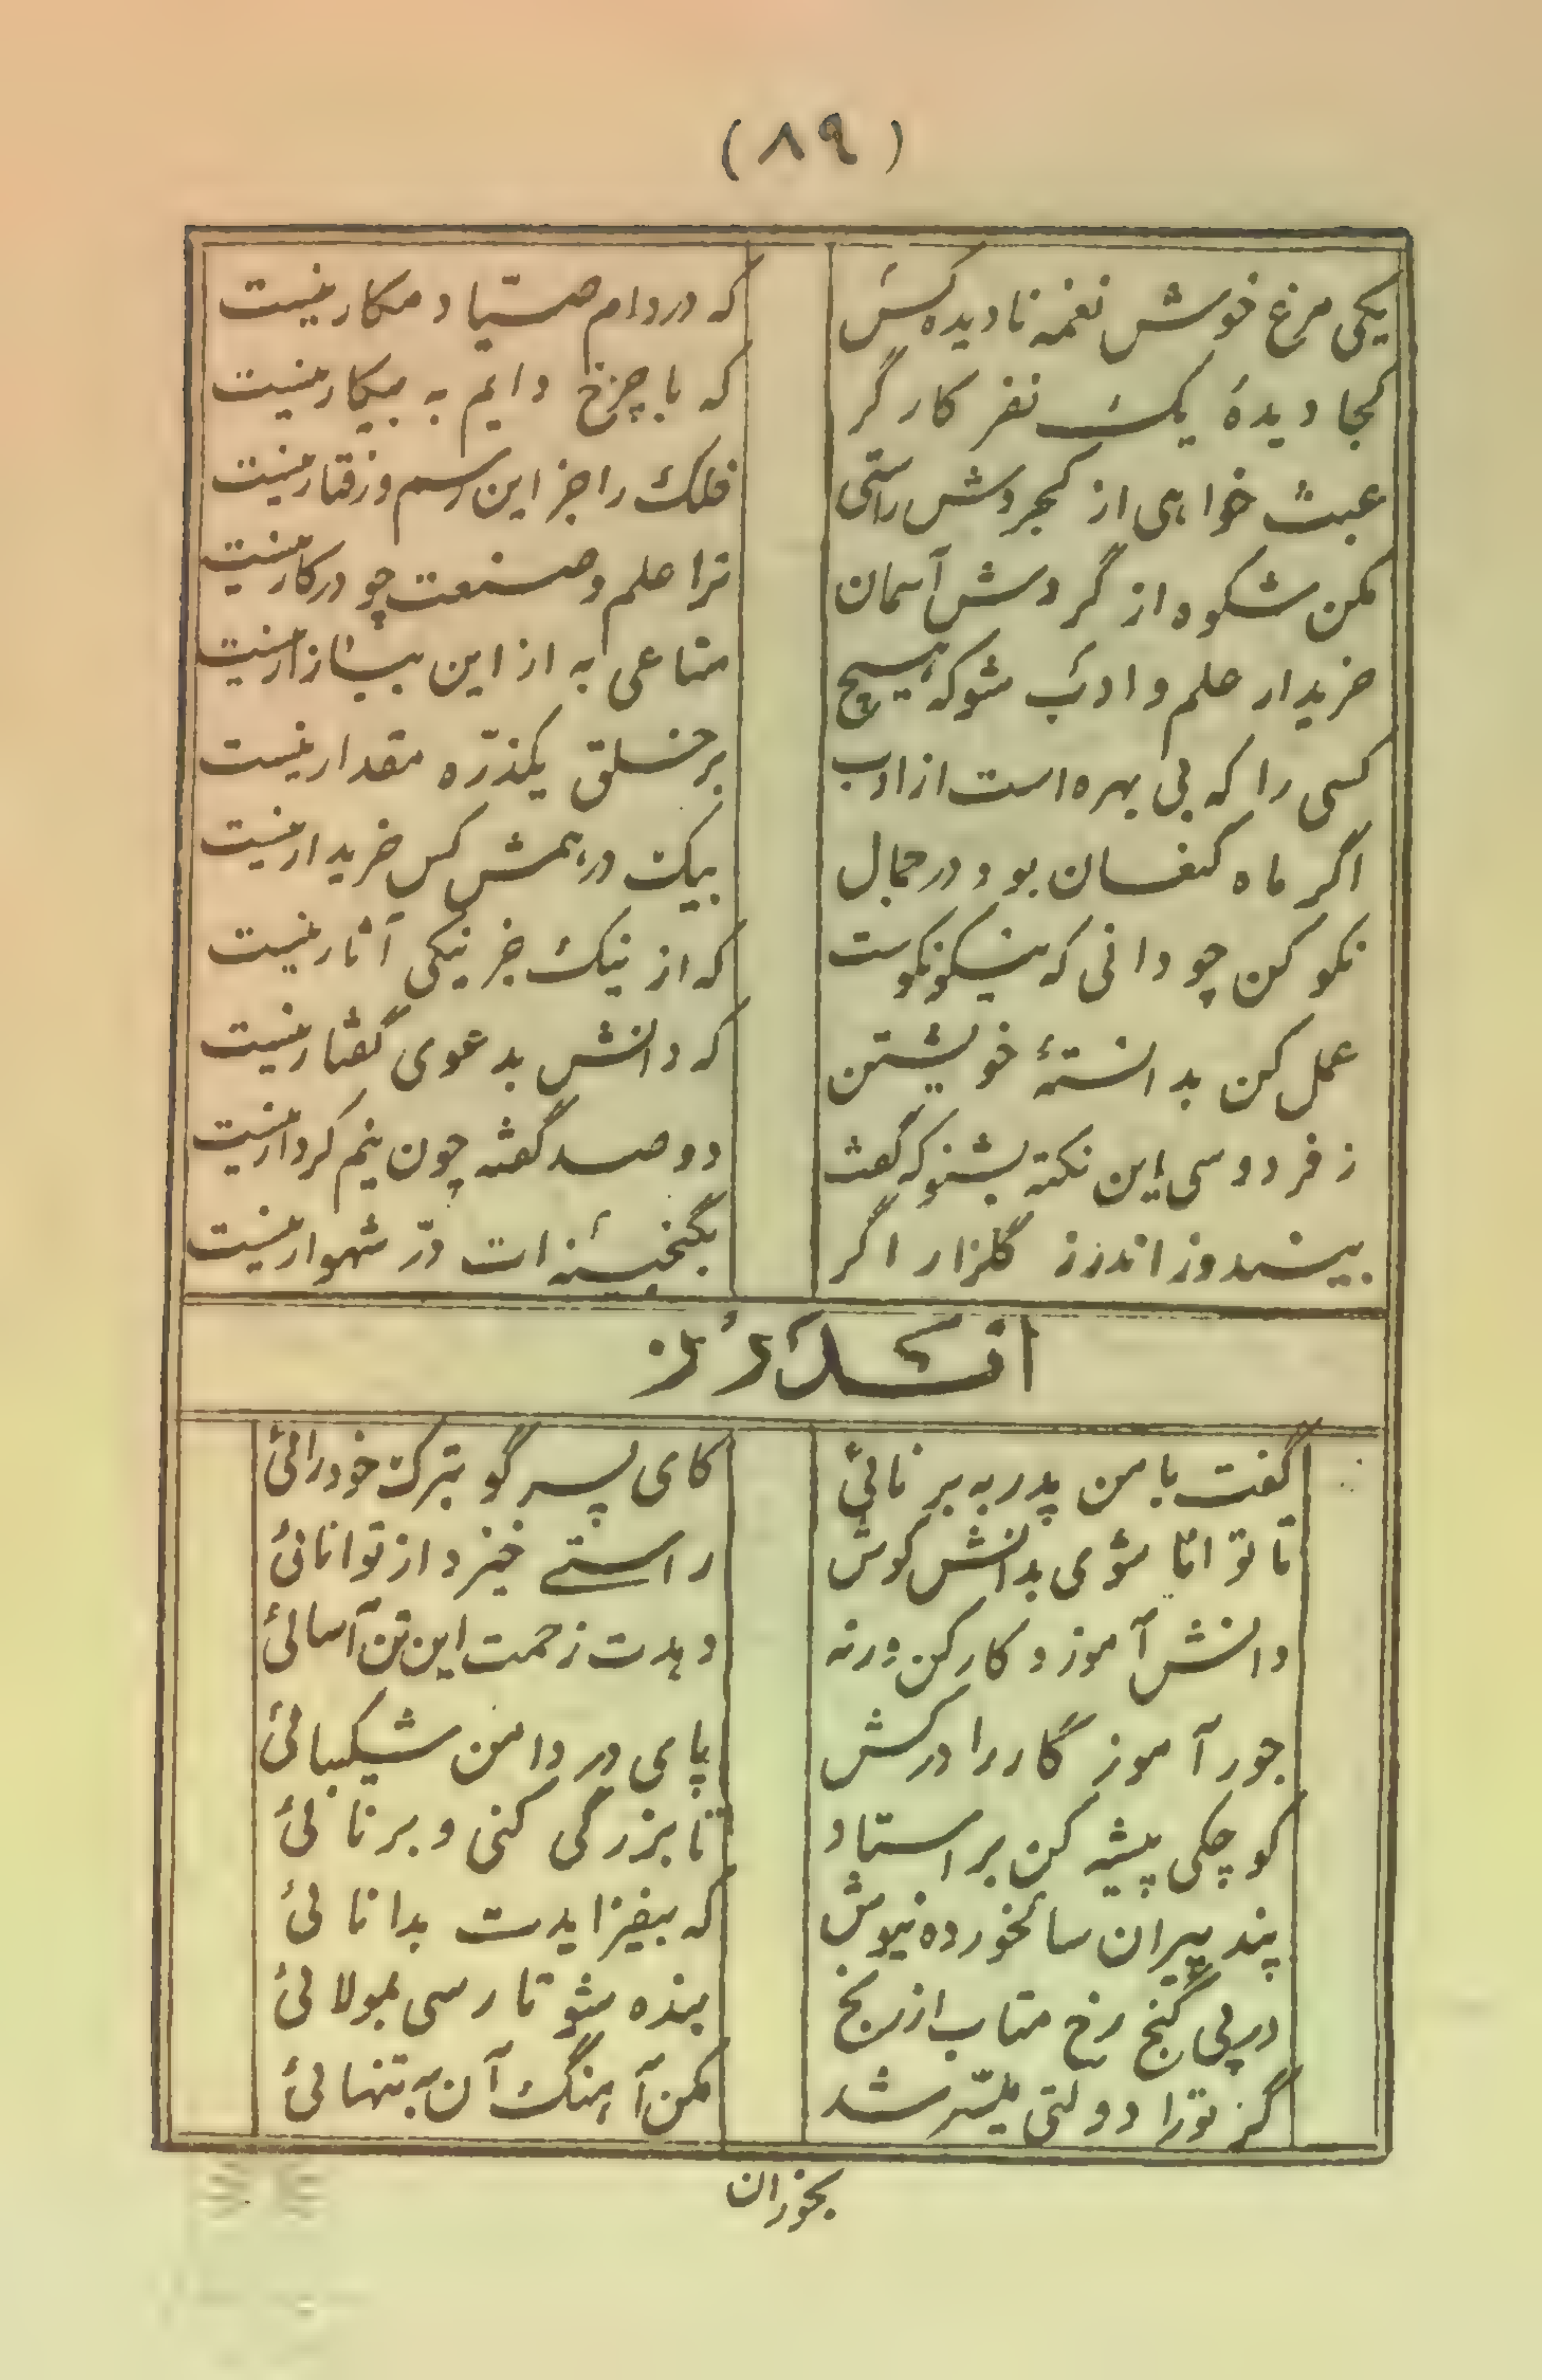 (۸۹)
یکی مرغ خوش نغمه نادیده کس که در دام صیّاد مکار نیست
کجا دیدهٔ یک نفر کارگر که با چرخ دایم به پیکار نیست
عبث خواهی از کجروش راستی فلک را جز این رسم و رفتار نیست
مکن شکوه از گردش آسمان ترا علم و صنعت چو در کار نیست
خریدار علم و ادب شو که هیچ متاعی به از این ببازار نیست
کسی را که بی بهره است از ادب بر خلق یکذرّه مقدار نیست
اگر ماه کنعان بود در جمال بیک درهمش کس خریدار نیست
نکو کن چو دانی که نیکو نکوست که از نیک جز نیکی آثار نیست
عمل کن بدانستهٔ خویشتن که دانش بدعوی گفتار نیست
ز فردوسی این نکته بشنو که گفت دو صد گفته چون نیم کردار نیست
بیندوز اندرز گلزار اگر بگنجینه ات درّ شهوار نیست
اندرز
گفت با من پدر به برنائی کای پسر گو بترک خودرائی
تا توانا شوی بدانش کوش راستی خیزد از توانائی
دانش آموز و کار کن ورنه دهدت زحمت این تن آسائی
جور آموزگار را در کش پای در دامن شکیبائی
کوچکی پیشه کن بر استاد تا بزرگی کنی و برنائی
پند پیران سالخورده نیوش که بیفزایدت بدانائی
در پی گنج رخ متاب از رنج بنده شو تا رسی بمولائی
گر تو را دولتی میسّر شد مکن آهنگ آن به تنهائی
بخوران